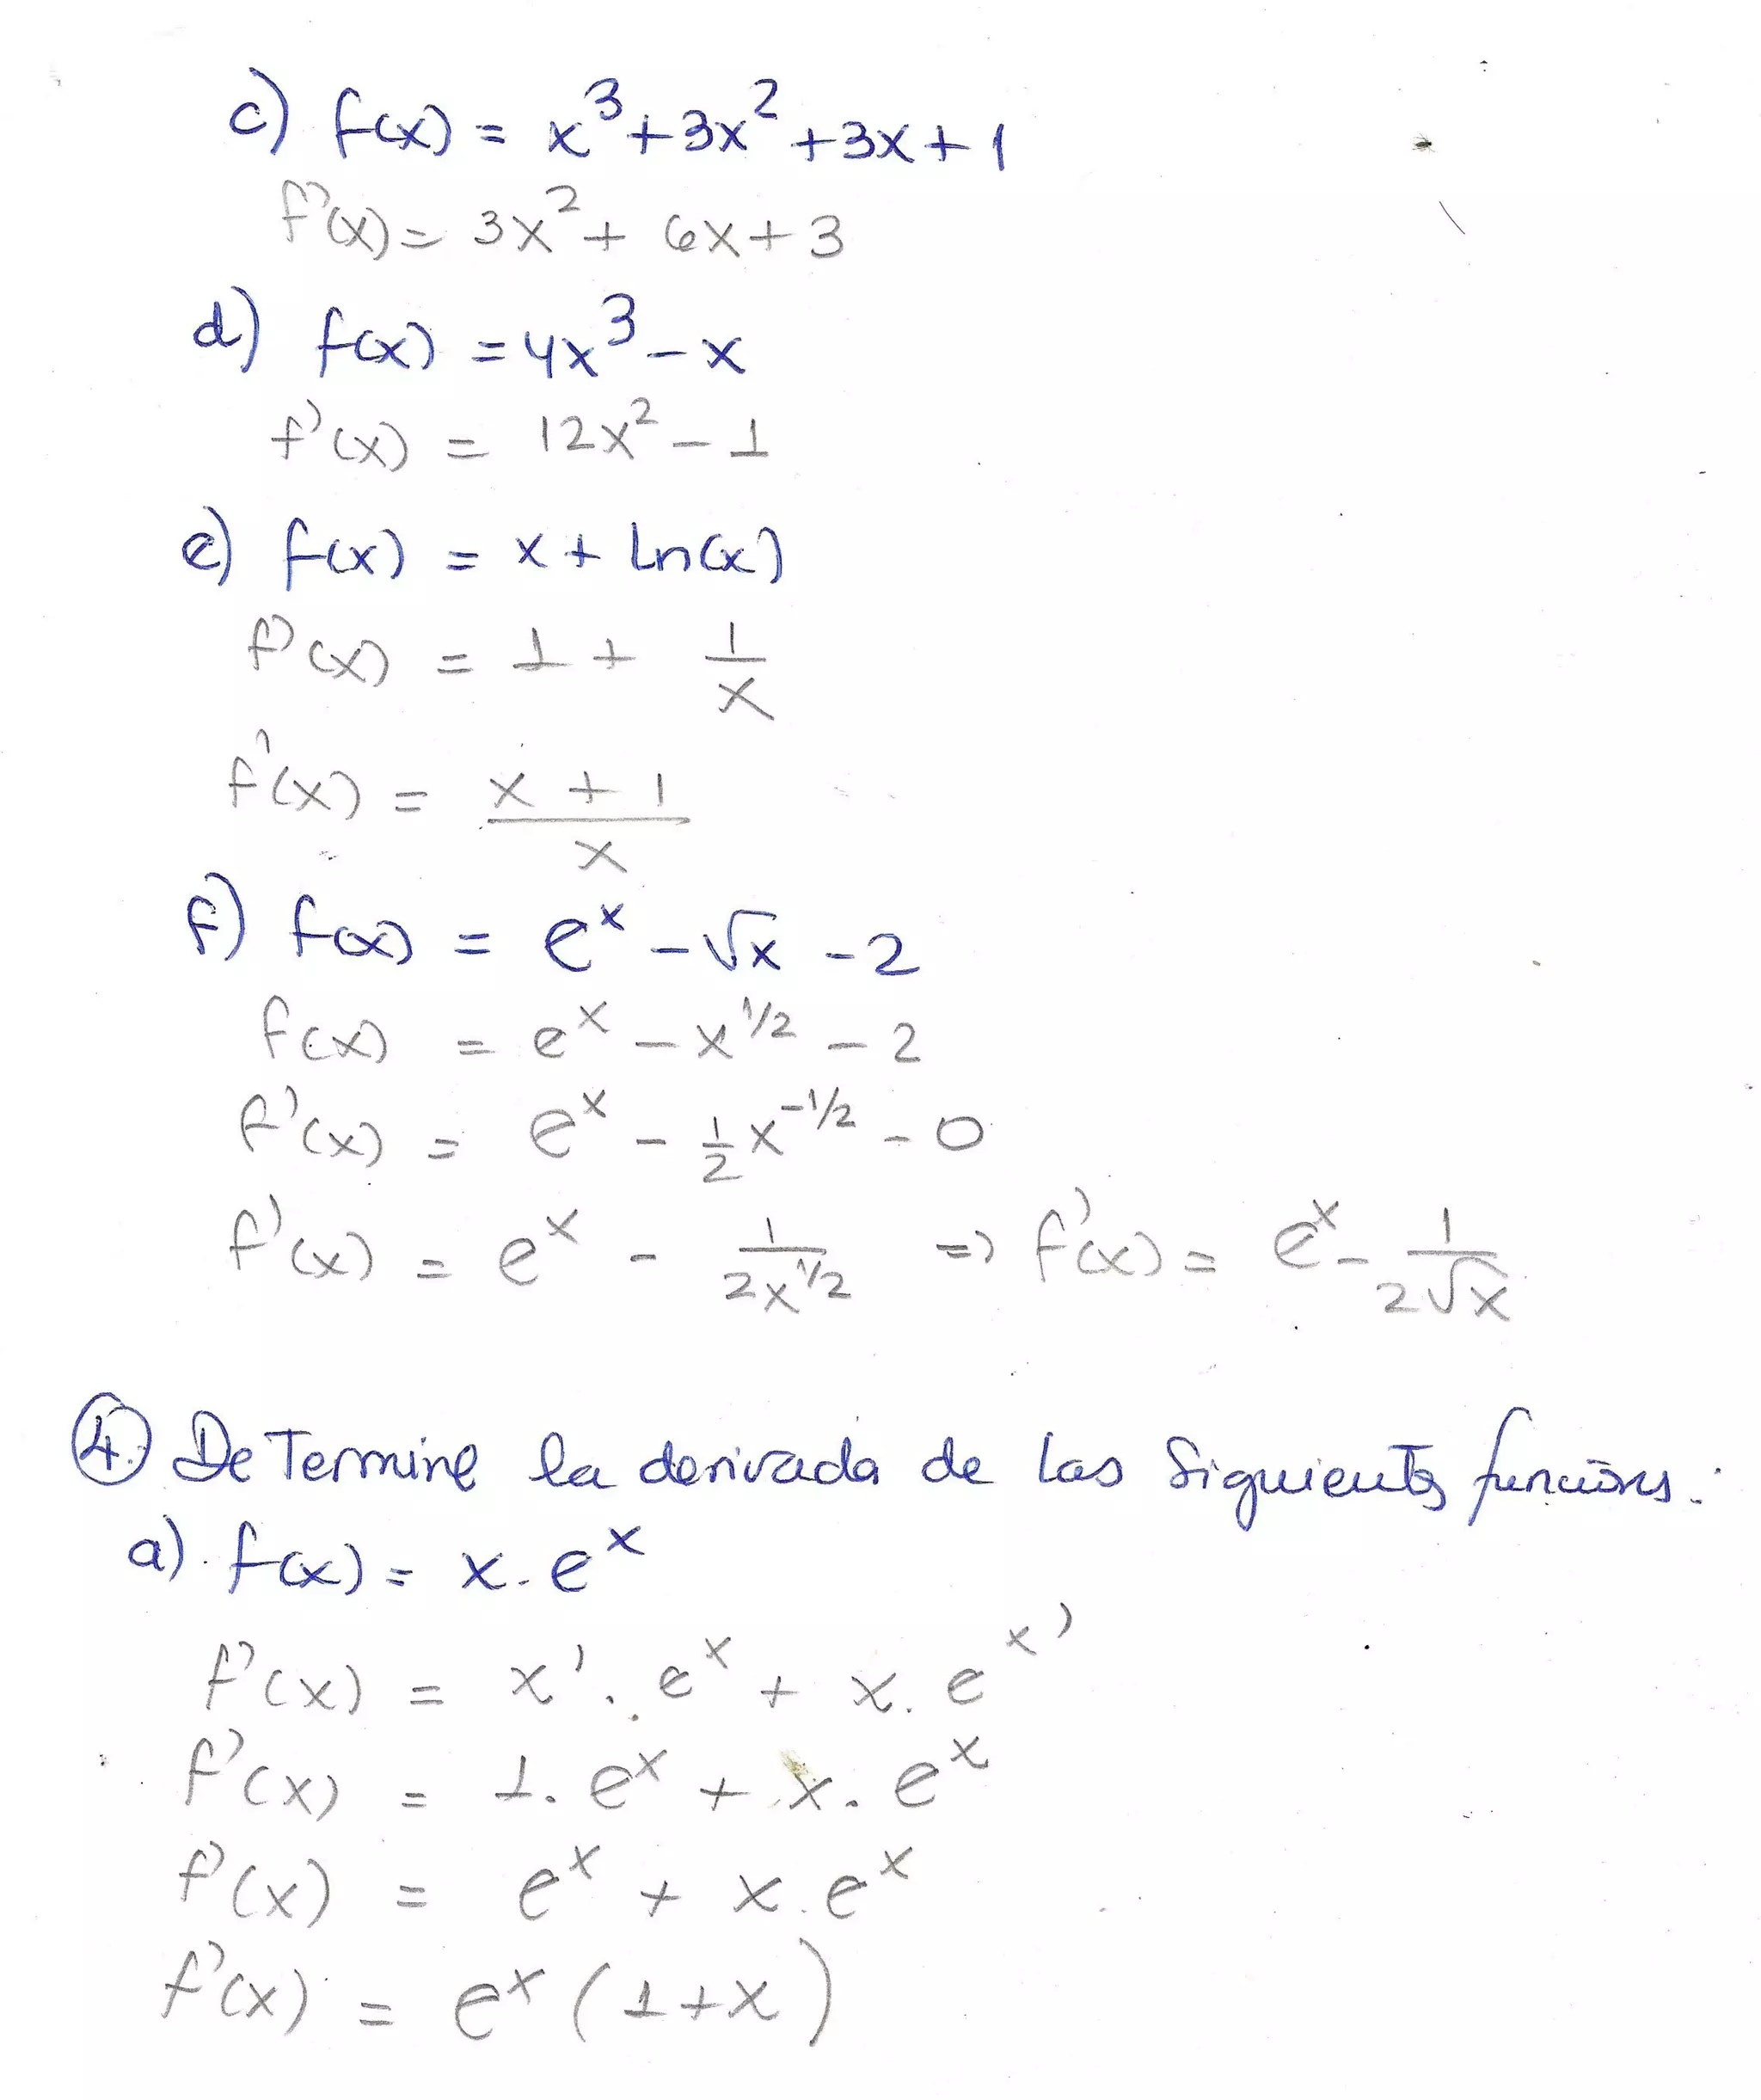 c) f(x) = x³+3x²+3x+1
f'(x) = 3x²+ 6x+3
d) f(x) = 4x³-x
f'(x) = 12x²-1
e) f(x) = x+ Ln(x)
f'(x) = 1 + 1/x
f'(x) = (x+1)/x
f) f(x) = eˣ -√x -2
f(x) = eˣ - x^1/2 - 2
f'(x) = eˣ - 1/2 x^-1/2 - 0
f'(x) = eˣ - 1/(2x^1/2) => f'(x) = eˣ - 1/(2√x)
4. Determine la derivada de las siguientes funciones:
a). f(x) = x.eˣ
f'(x) = x'. eˣ + x. eˣ'
f'(x) = 1. eˣ + x. eˣ
f'(x) = eˣ + x.eˣ
f'(x) = eˣ (1+x)